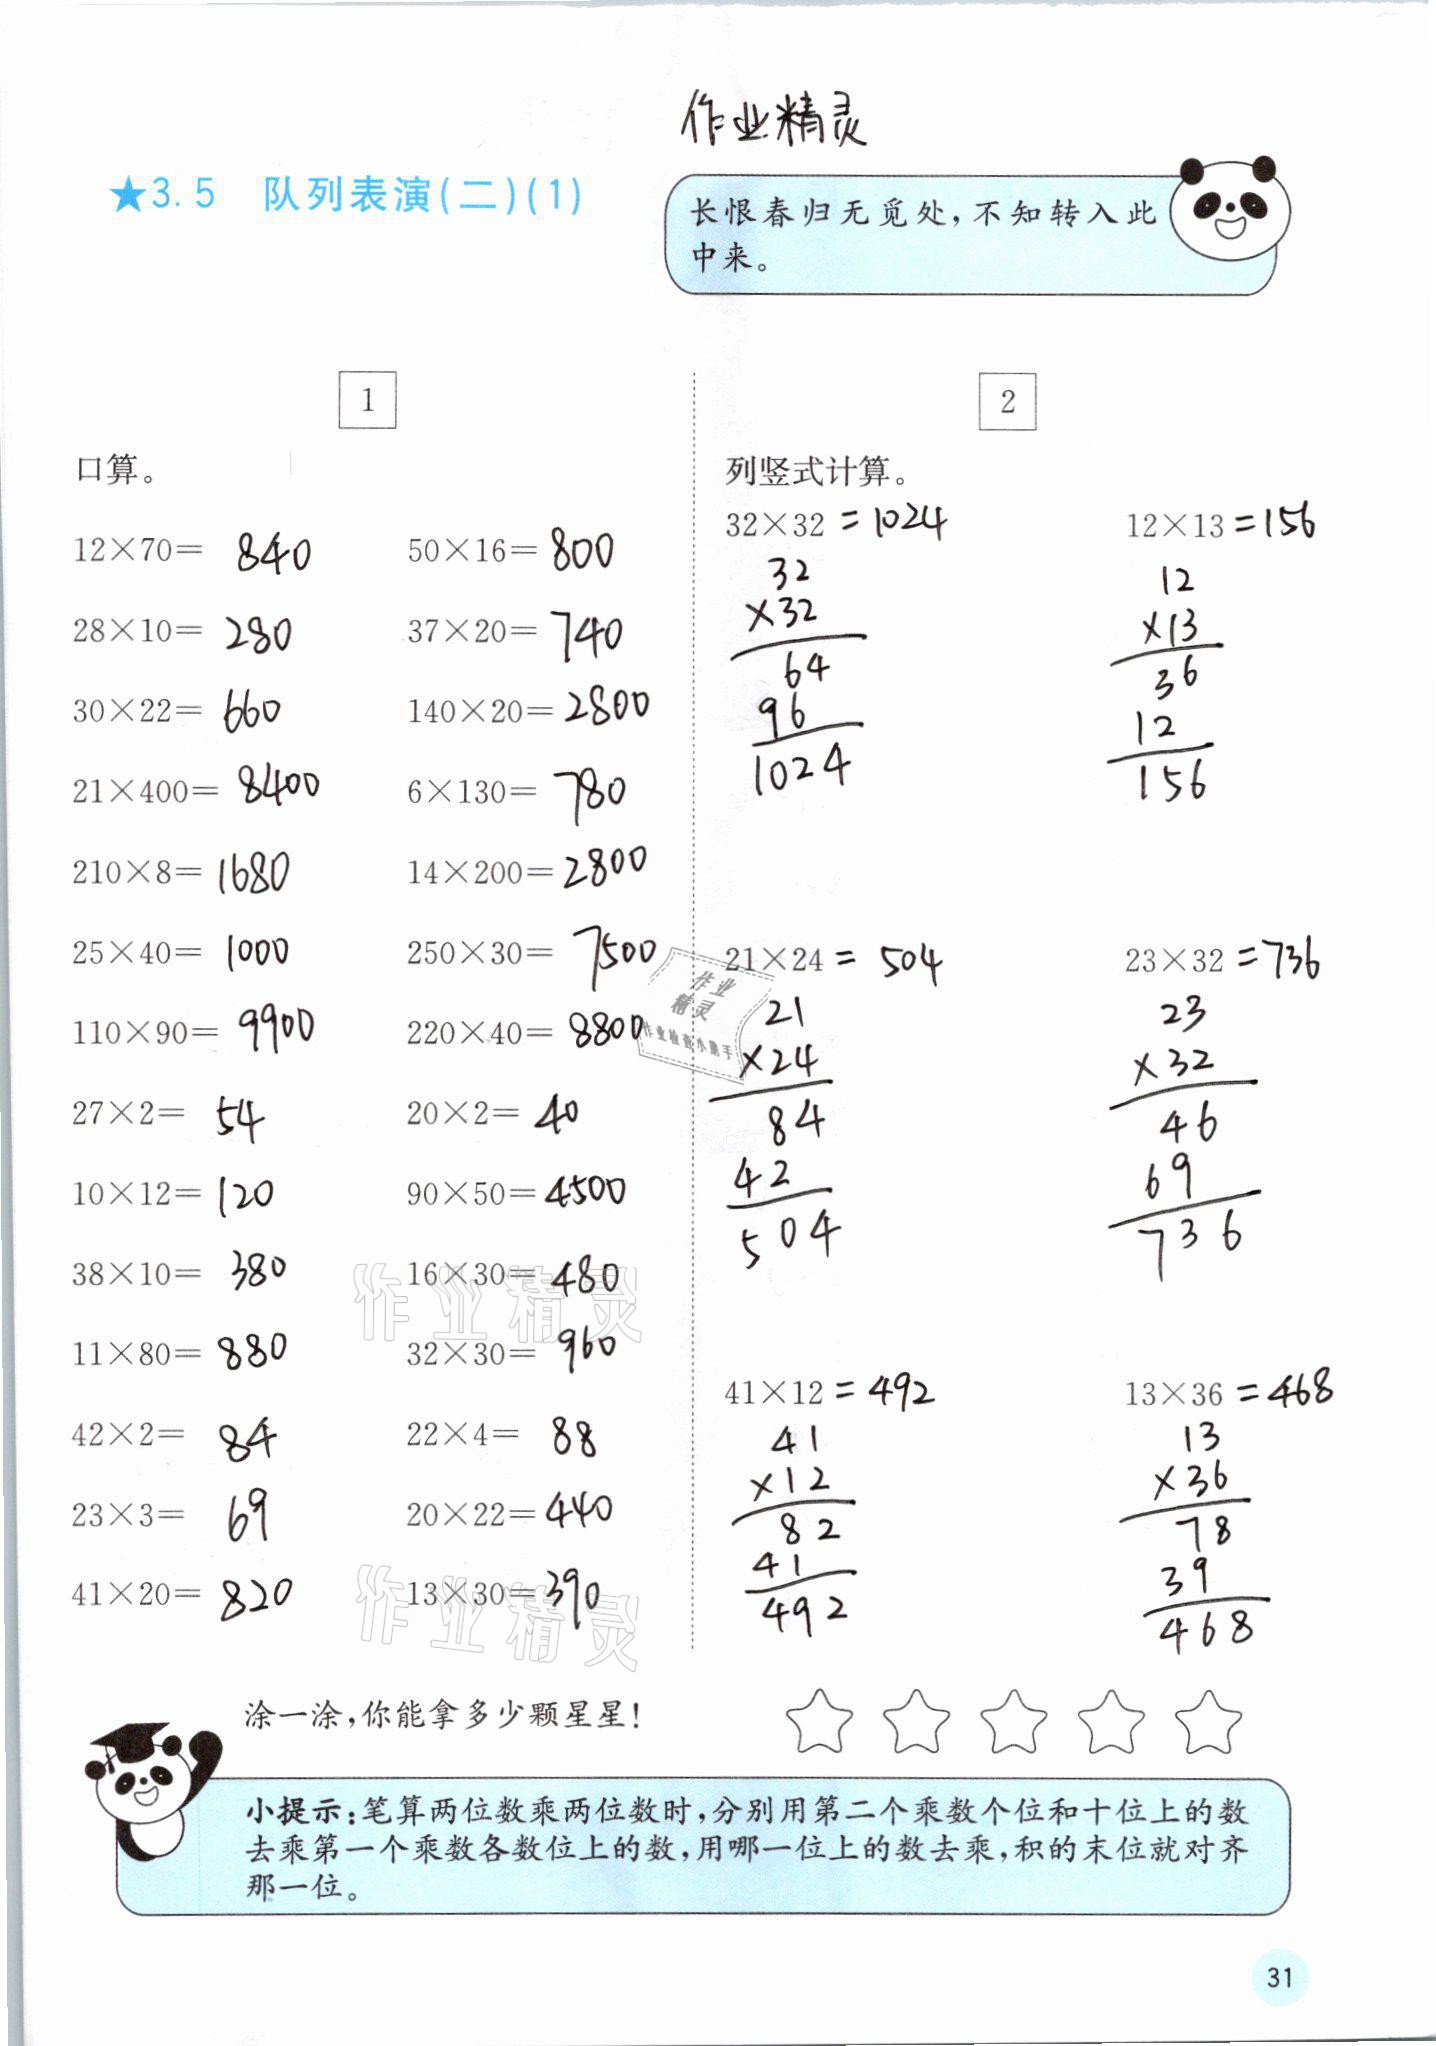 作业精灵
★3.5 队列表演(二)(1)
长恨春归无觅处,不知转入此
中来。
1
口算。
12×70= 840 50×16= 800
28×10= 280 37×20= 740
30×22= 660 140×20= 2800
21×400= 8400 6×130= 780
210×8= 1680 14×200= 2800
25×40= 1000 250×30= 7500
110×90= 9900 220×40= 8800
27×2= 54 20×2= 40
10×12= 120 90×50= 4500
38×10= 380 16×30= 480
11×80= 880 32×30= 960
42×2= 84 22×4= 88
23×3= 69 20×22= 440
41×20= 820 13×30= 390
作业精灵
作业精灵
作业
精灵
作业检查小助手
2
列竖式计算。
32×32 =1024
32
×32
64
96
1024
12×13 =156
12
×13
36
12
156
21×24 = 504
21
×24
84
42
504
23×32 =736
23
×32
46
69
736
41×12 =492
41
×12
82
41
492
13×36 =468
13
×36
78
39
468
涂一涂,你能拿多少颗星星!
小提示:笔算两位数乘两位数时,分别用第二个乘数个位和十位上的数
去乘第一个乘数各数位上的数,用哪一位上的数去乘,积的末位就对齐
那一位。
31